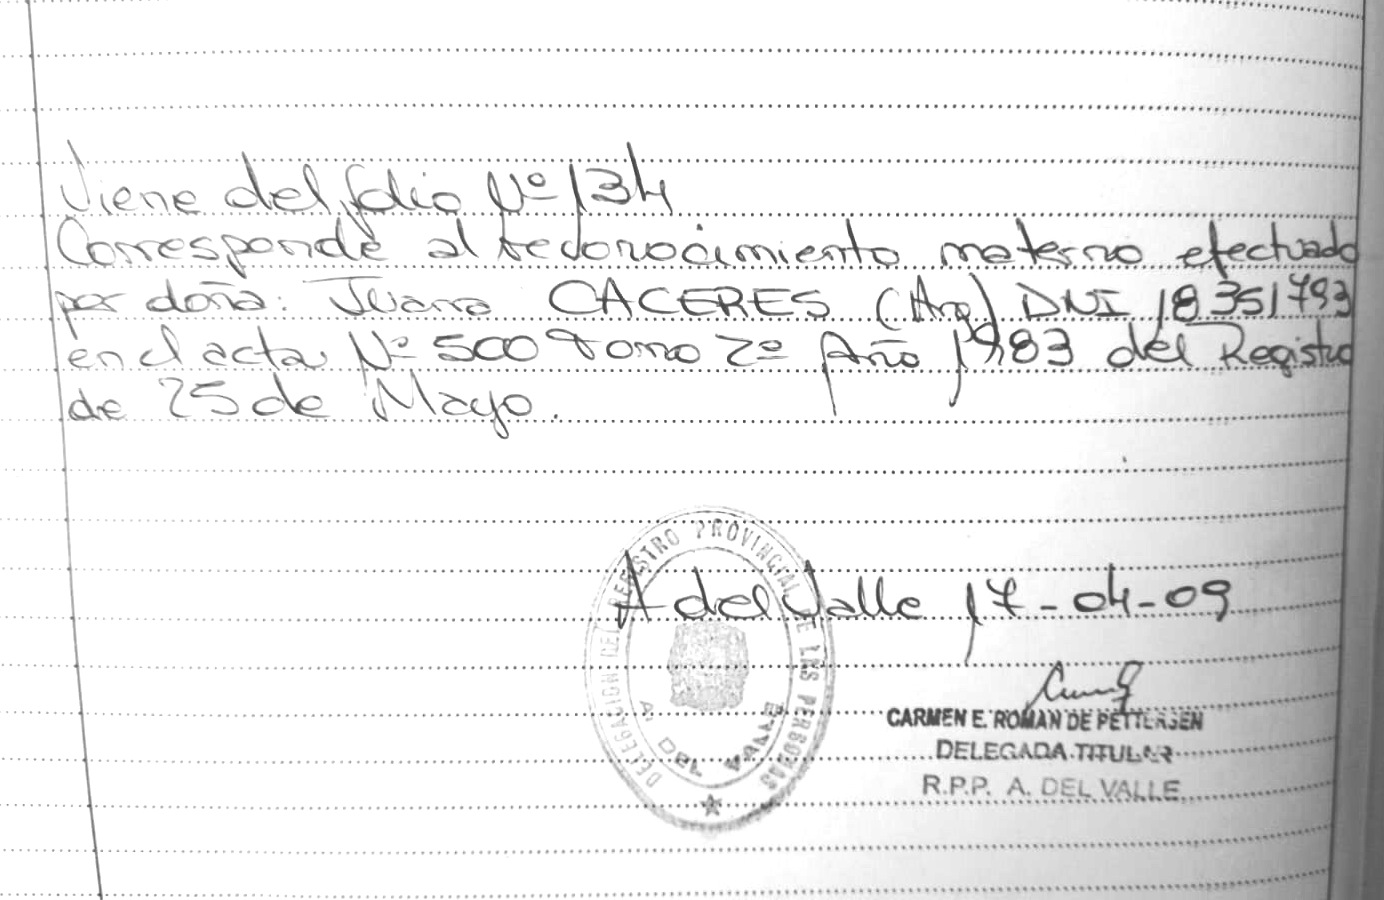 Viene del folio Nº 134
Corresponde al reconocimiento materno efectuado
por doña: Juana CACERES (Arg) DNI 18351793
en el acta Nº 500 Tomo 2º Año 1983 del Registro
de 25 de Mayo.
A del Valle 17-04-09
DELEGACION DEL REGISTRO PROVINCIAL DE LAS PERSONAS
A. DEL VALLE
CARMEN E. ROMAN DE PETTERSEN
DELEGADA TITULAR
R.P.P. A. DEL VALLE